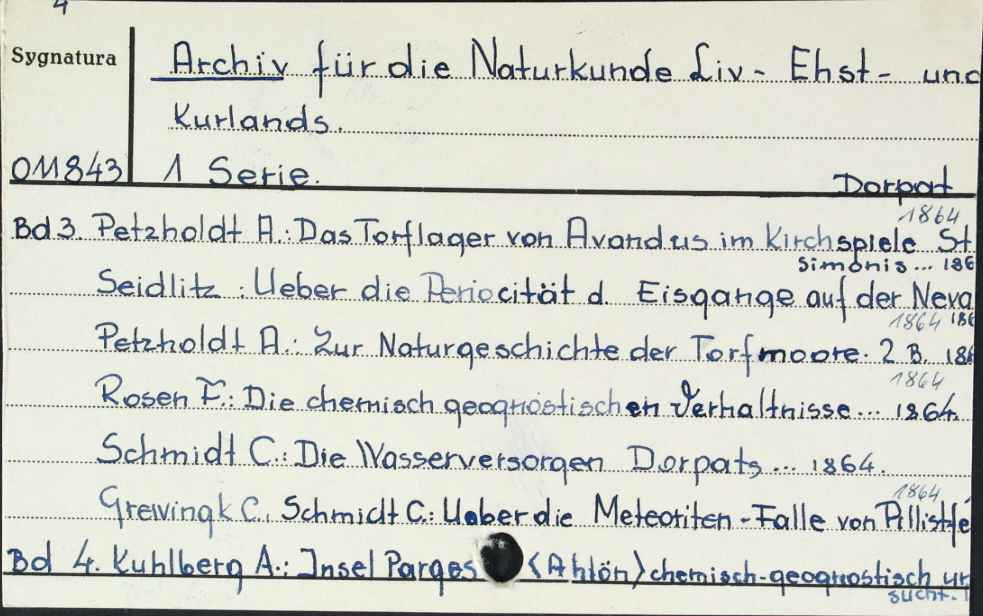 4
Sygnatura
Archiv für die Naturkunde Liv- Ehst- und
Kurlands.
011843
1 Serie.
Dorpat
1864
Bd 3. Petzholdt A.: Das Torflager von Avandus im Kirchspiele St
Simonis... 186
Seidlitz : Ueber die Periocität d. Eisgange auf der Neva
1864 186
Petzholdt A.: Zur Naturgeschichte der Torfmoore. 2 B. 186
1864
Rosen F.: Die chemisch geognostischen Verhaltnisse... 1864.
Schmidt C.: Die Wasserversorgen Dorpats ... 1864.
1864
Grewingk C., Schmidt C.: Ueber die Meteoriten-Falle von Pillistfe
Bd 4. Kuhlberg A.: Insel Parges (Ahlön) chemisch-geognostisch un
sucht.